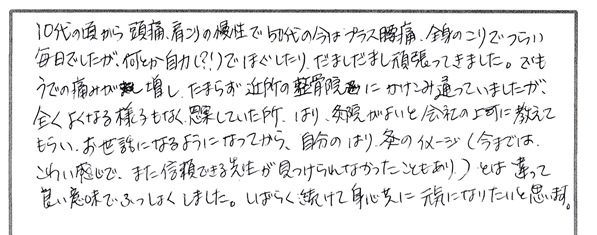 10代の頃から頭痛、肩こりの慢性で50代の今はプラス腰痛、全身のこりでつらい
毎日でしたが、何とか自力(?!)でほぐしたり、だましだまし頑張ってきました。でも
うでの痛みが増し、たまらず近所の整骨院にかけこみ通っていましたが、
全くよくなる様子もなく、思案していた所、はり、灸院がよいと会社の上司に教えて
もらい、お世話になるようになってから、自分のはり、灸のイメージ(今までは、
こわい感じで、また信頼できる先生が見つけられなかったこともあり)とは違って
良い意味でふっしょくしました。しばらく続けて身心共に元気になりたいと思います。